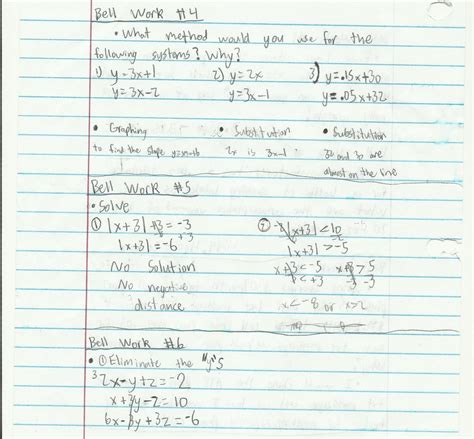 Bell Work #4
• What method would you use for the
following systems? Why?
1) y=3x+1 2) y=2x 3) y=.15x+30
y=3x-2 y=3x-1 y=.05x+32
• Graphing • Substitution • Substitution
to find the slope 2x is 3x-1 32 and 30 are
almost on the line
Bell Work #5
• Solve
① |x+3|+3=-3 ② -2|x+3|<10
|x+3|=-6 |x+3|>-5
No Solution x+3<-5 x+3>5
No negative -3 -3
distance x<-8 or x>2
Bell Work #6
• ① Eliminate the "y"s
3 2x-y+z=-2
x+3y-z=10
6x-3y+3z=-6